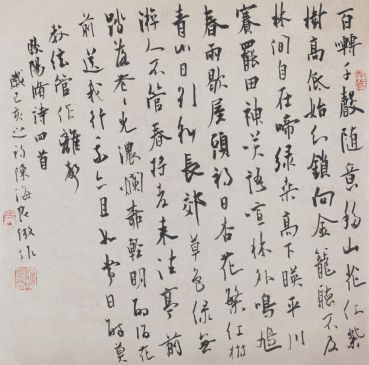 百囀千聲隨意移山花紅紫
樹高低始知鎖向金籠聽不及
林間自在啼綠桑高下暎平川
賽罷田神笑語喧林外鳴鳩
春雨歇屋頭初日杏花繁紅樹
青山日欲斜長郊草色綠無
游人不管春將老來往亭前
踏落花花光濃爛柳輕明酌酒花
前送我行我亦且如常日醉莫
教弦管作離聲
歐陽脩詩四首
歲己亥之初陳海良作